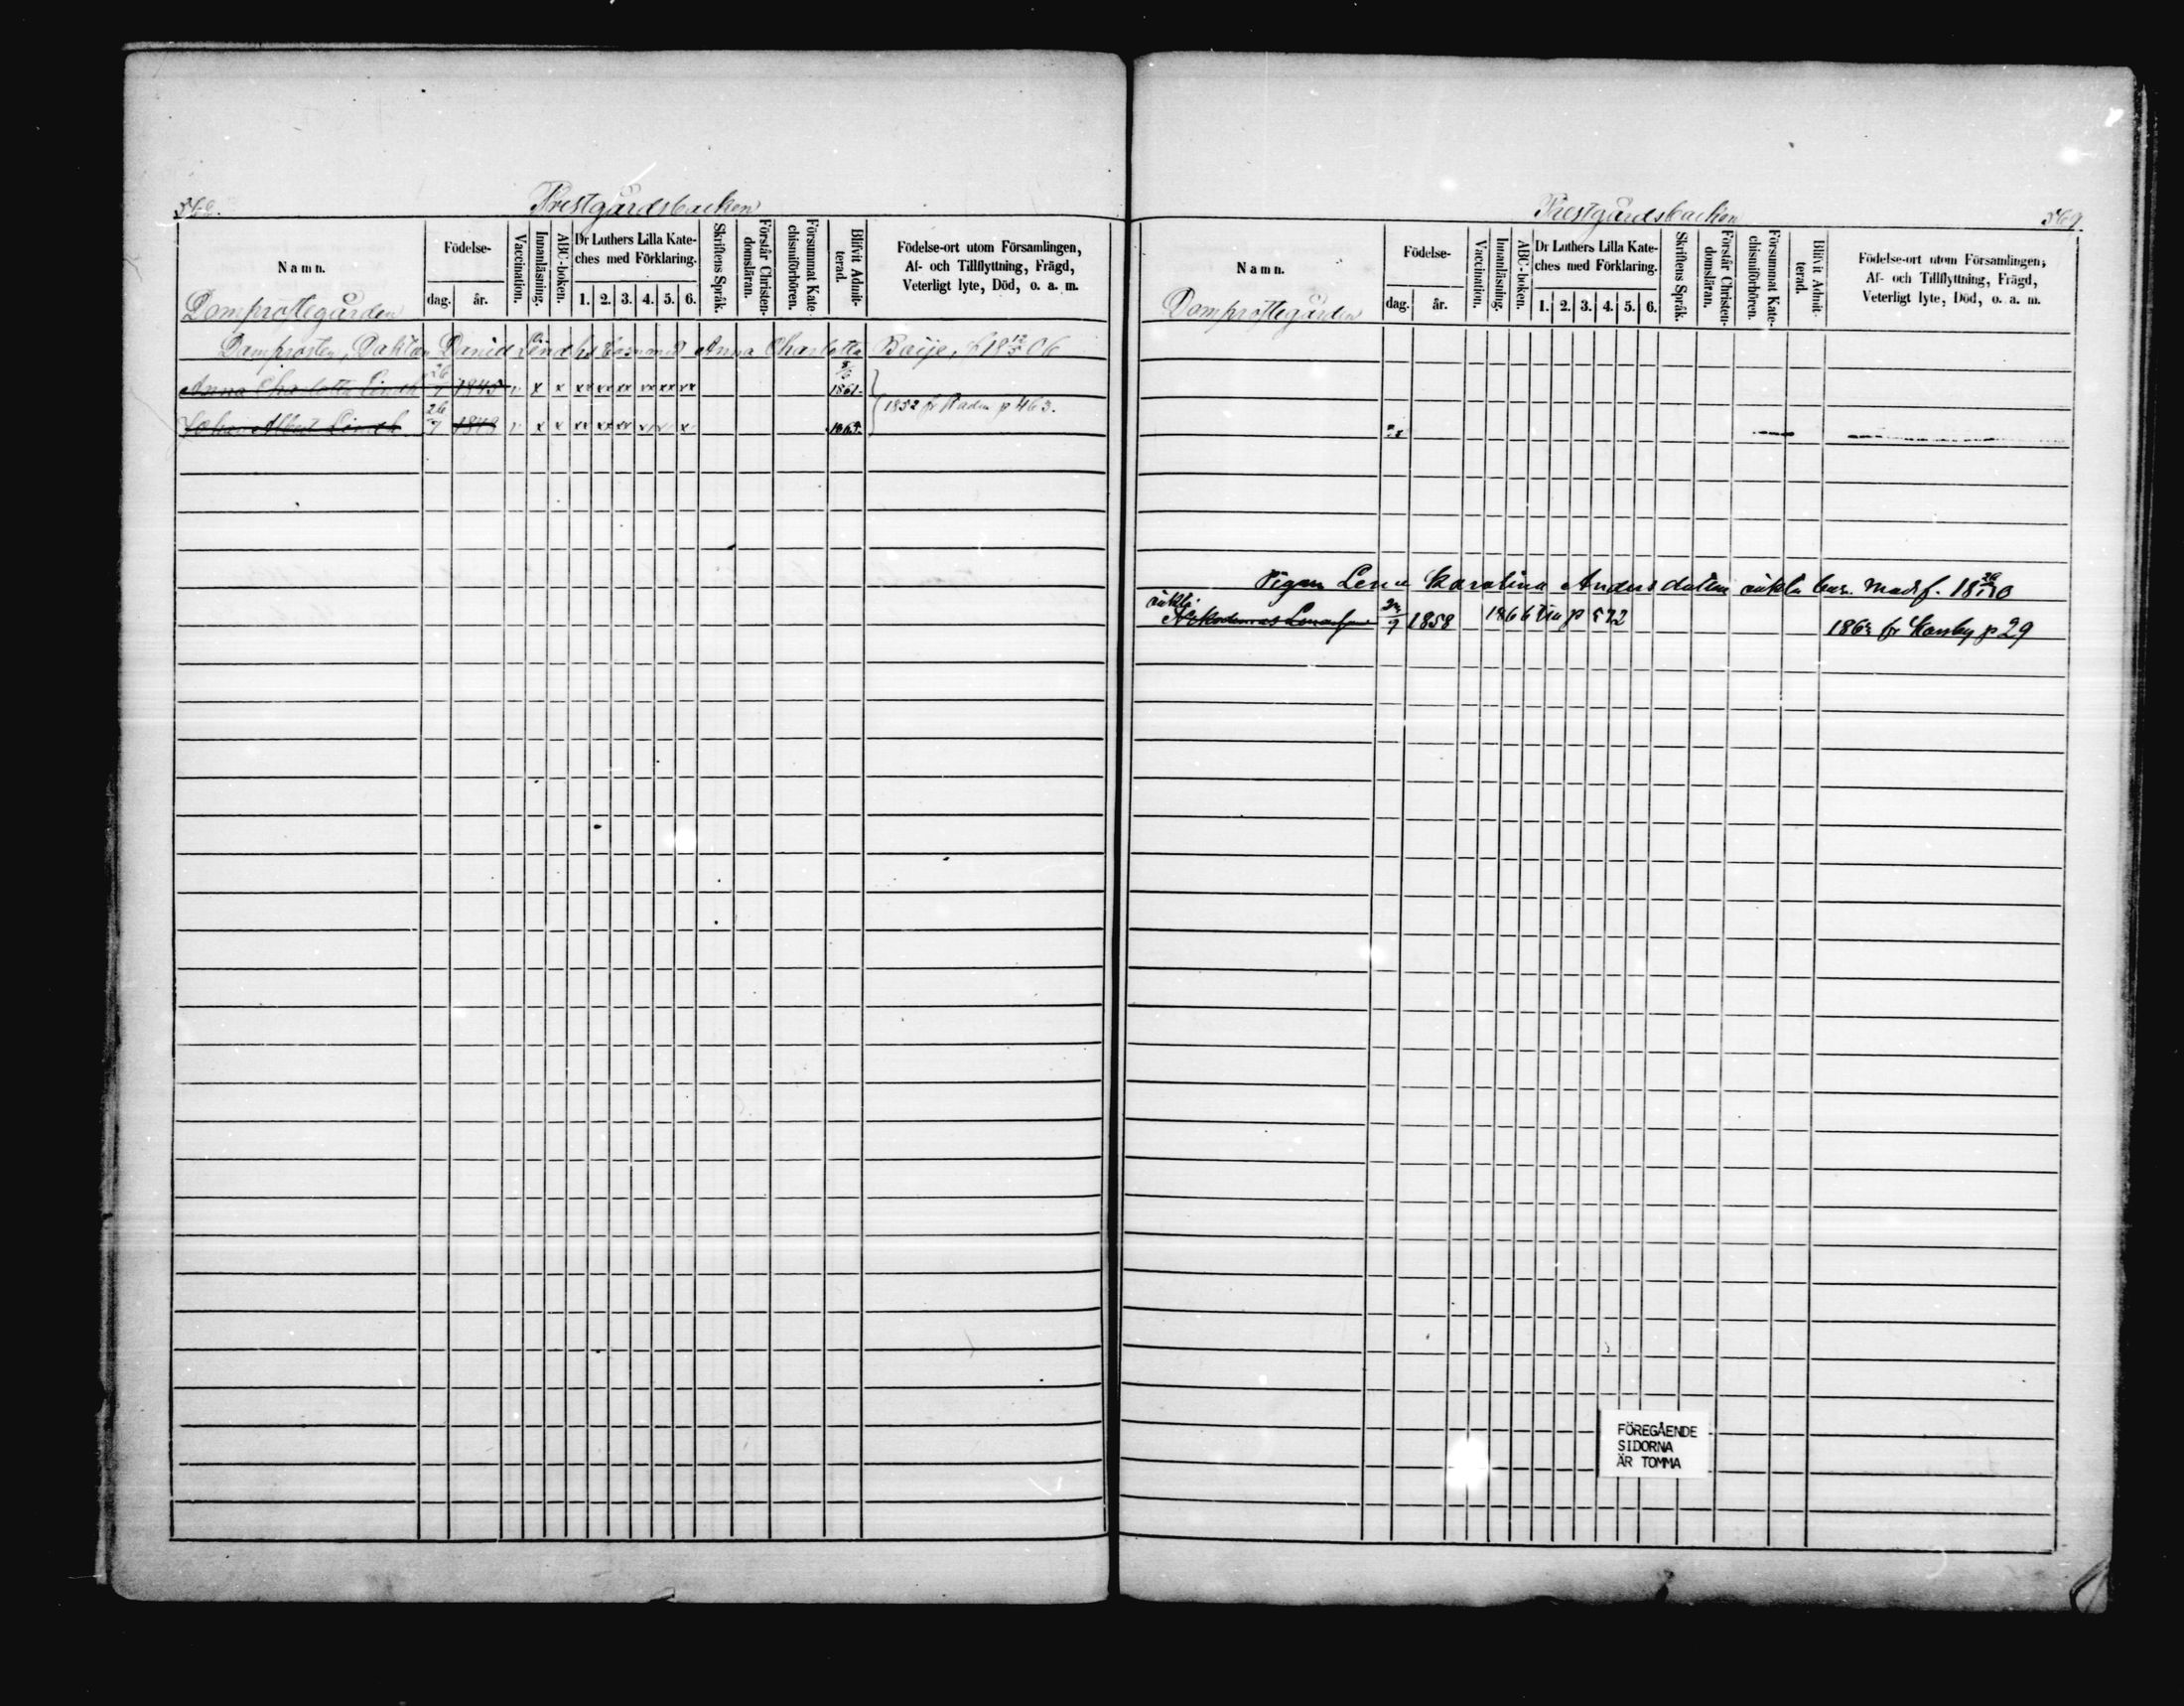 Prestgårdsbacken
Namn.
Födelse-
dag. år.
Vaccination.
Innanläsning.
ABC-boken.
Dr Luthers Lilla Kate-
ches med Förklaring.
1. 2. 3. 4. 5. 6.
Skriftens Språk.
Förstår Christen-
domsläran.
Försummat Kate-
chismiförhören.
Blifvit Admit-
terad.
Födelse-ort utom Församlingen,
Af- och Tillflyttning, Frägd,
Veterligt lyte, Död, o. a. m.
Domprostegården
Domprosten, Doktor Daniel Lindhs barn med Anna Charlotta Boije, f 18 12/5 06
Anna Charlotta Lindh 26/7 1845 v x x xx xx xx xx xx xx 1861.
1852 fr Staden p 463.
Johan Albert Lindh 26/7 1848 v x x xx xx xx x
Prestgårdsbacken 569.
Namn.
Födelse-
dag. år.
Vaccination.
Innanläsning.
ABC-boken.
Dr Luthers Lilla Kate-
ches med Förklaring.
1. 2. 3. 4. 5. 6.
Skriftens Språk.
Förstår Christen-
domsläran.
Försummat Kate-
chismiförhören.
Blifvit Admit-
terad.
Födelse-ort utom Församlingen,
Af- och Tillflyttning, Frägd,
Veterligt lyte, Död, o. a. m.
Domprostegården
Pigan Lena Karolina Anders dotters oäkta barn
oäkta
1858 1866 p 572 fr Karsby p 29
FÖREGÅENDE
SIDORNA
ÄR TOMMA